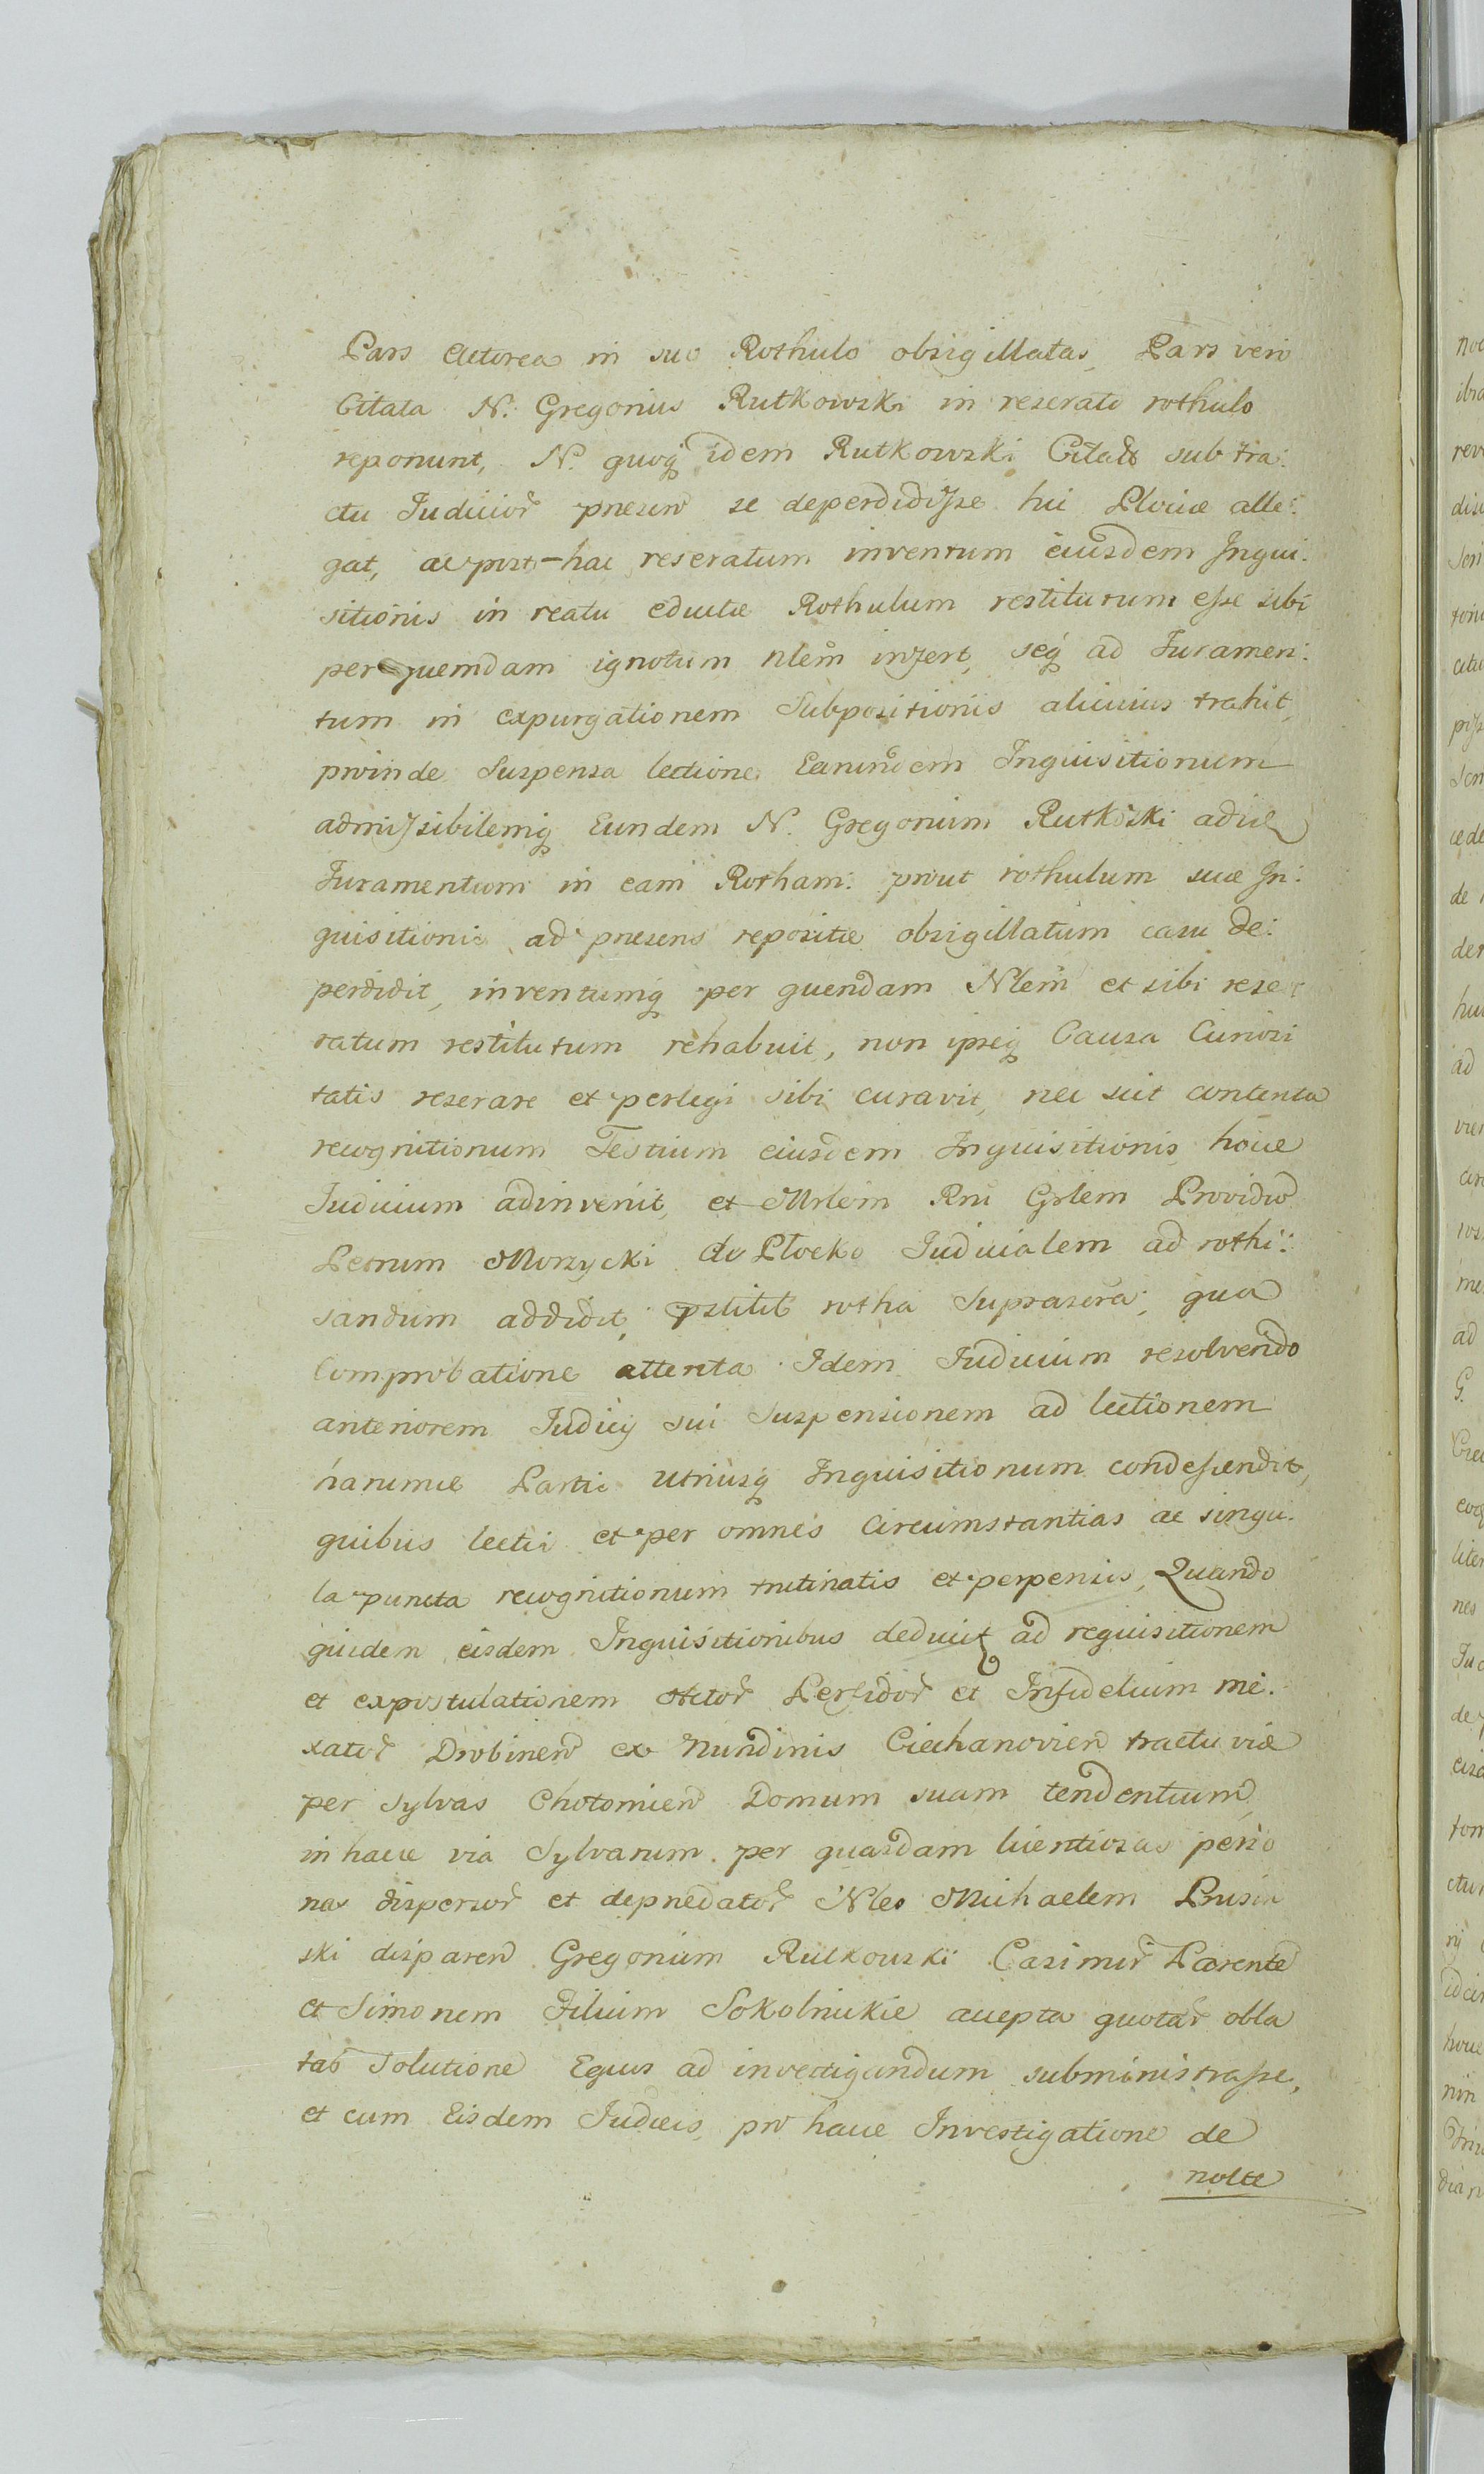 Pars Actorea in suo Rothulo obsigillatas, Pars vero
Citata N. Gregorius Rutkowski in reserato rothulo
reponunt, N. quoq idem Rutkowski Citats sub tra:
ctu Iudicior presen se deperdidisse hic Plociæ alle:
gat, ac post-hac reseratum inventum eiusdem Inqui:
sitionis in reatu eductæ Rothulum restitutum esse sibi
per quemdam ignotum Nlem inserit, seq ad Juramen:
tum in expurgationem Subpositionis alicuius trahit,
proinde Suspensa lectione Earundem Inquisitionum
admissibilemq Eundem N. Gregorium Rutkoski
Juramentum in eam Rotham: prout rothulum suæ In:
quisitionis ad presens repositæ obsigillatum casu de:
perdidit, inventumq per quendam Nlem et sibi rese
ratum restitutum rehabuit, non ipseq Causa Curiosi
tatis reserare et perlegi sibi curavit, nec scit contenta
recognitionum Testium eiusdem Inquisitionis,
Iudicium adinvenit, et Mrlem Rni Grlem Providu
Petrum Morzycki de Płocko Iudicialem ad rothi:
sandum addidit, pstitit rotha Suprascra, qua
Comprobatione attenta Idem Iudicium resolvendo
anteriorem Iudicij sui Suspensionem ad lectionem
harumce Partis utriusq Inquisitionum condescendit,
quibus lectis et per omnes Circumstantias ac singu:
la puncta recognitionum trutinatis et perpensis, Quando
quidem eisdem Inquisitionibus deducit ad requisitionem
et expostulationem Actor Perfidor et Infidelium me:
rator Drobinen ex Nundinis Ciechanovien tractu viæ
per Sylvas Chotomien Domum suam tendentium,
in hacce via Sylvarum per quasdam licentiosas perso
nas dispersor et depredator Nles Michaelem Prusin
ski disparen Gregorium Rutkowski Casimir Parente
et Simonem Filium Sokolnickie accepta quotar obla
tar Solutione Equos ad investigandum subministrasse,
et cum Eisdem Iudæis, pro hacce Investigatione de
nocte